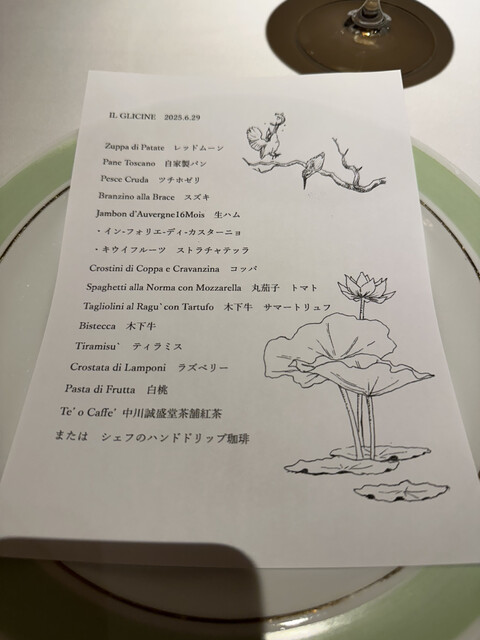 IL GLICINE 2025.6.29
Zuppa di Patate レッドムーン
Pane Toscano 自家製パン
Pesce Cruda ツチホゼリ
Branzino alla Brace スズキ
Jambon d'Auvergne16Mois 生ハム
・イン-フォリエ-ディ-カスターニョ
・キウイフルーツ ストラチャテッラ
Crostini di Coppa e Cravanzina コッパ
Spaghetti alla Norma con Mozzarella 丸茄子 トマト
Tagliolini al Ragu`con Tartufo 木下牛 サマートリュフ
Bistecca 木下牛
Tiramisu` ティラミス
Crostata di Lamponi ラズベリー
Pasta di Frutta 白桃
Te' o Caffe' 中川誠盛堂茶舗紅茶
または シェフのハンドドリップ珈琲